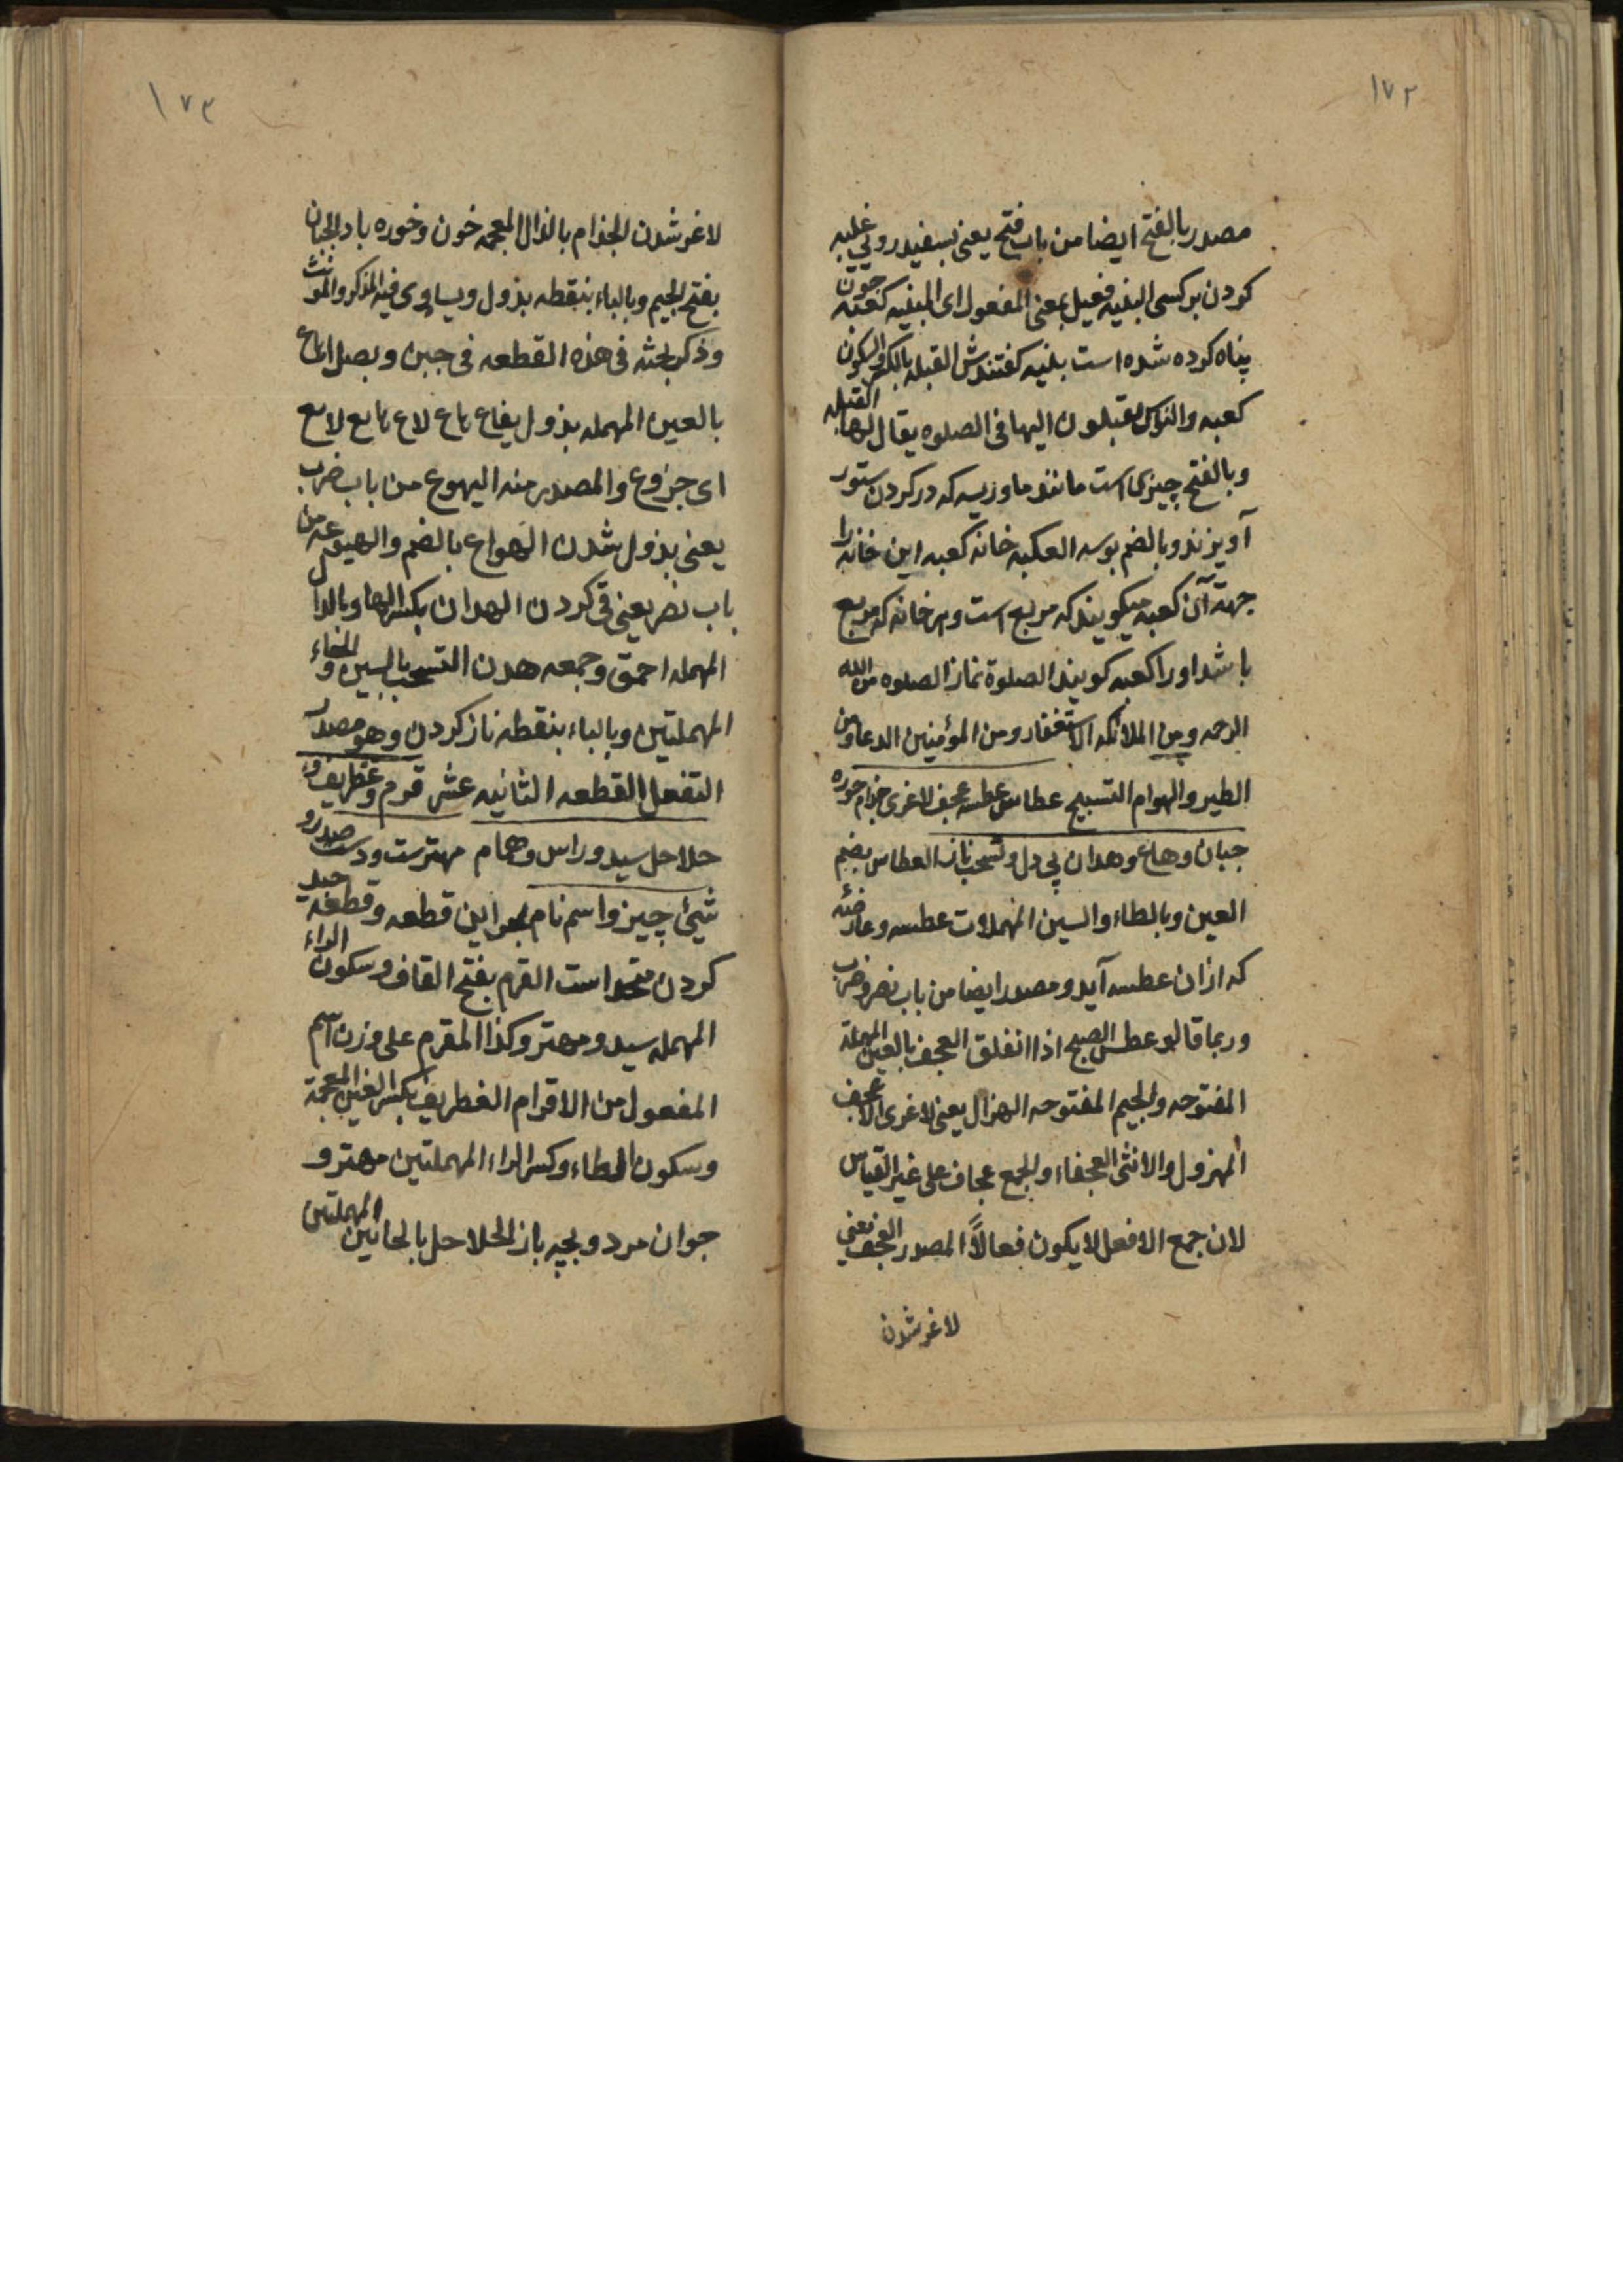 ١٧٢
مصدر بالفتح ايضا من باب فتح يعنى بسفيد روئي غلبه
كردن بر كسى البنيه فعيل بمعنى المفعول اى المبنيه كعبه چون
پناه كرده شده است بنيه گفتندش القبله بالكسر و السكون
كعبه والناس يقبلون اليها فى الصلوه يقال لها القبله
و بالفتح چيزى است مانند ما و زيسه كه در كردن ستور
آويزند و بالضم بوسه العكبه خانه كعبه اين خانه را
جهة آن كعبه ميكويند كه مربع است و هر خانه كه مربع
باشد او را كعبه كويند الصلوة نماز الصلوه من الله
الرحمه و من الملائكه الاستغفار و من المؤمنين الدعا و من
الطير و الهوام التسبيح عطاس عطسه عجف لاغرى جذام خوره
جبان و هاع و هدان بى دل و تسحب ناز العطاس بضم
العين و بالطاء و السين المهملات عطسه و عارضئه
كه ازان عطسه آيد و مصدر ايضا من باب نصر و ضرب
و ربما قالو عطس الصبح اذا انفلق العجف بالعين المهملة
المفتوحه و الجيم المفتوحه الهزال يعنى لاغرى الاعجف
المهزول و الانثى العجفاء و الجمع عجاف على غير القياس
لان جمع الافعل لا يكون فعالاً المصدر العجف يعنى
لاغر شدن
١٧٣
لاغر شدن الجذام بالذال المعجمه خون و خوره باد الجبان
بفتح الجيم و بالباء بنقطه بذول و يساوى فيه المذكر و المونث
و ذكر بحثه فى هذه القطعه فى جبن و بصل الهاع
بالعين المهمله بذول يقاع هاع لاع هايع لايع
اى جزوع و المصدر منه اليهوع من باب ضرب
يعنى بذول شدن الهواع بالضم و الهيوعه من
باب نصر يعنى قى كردن الهدان بكسر الها و بالدال
المهمله احمق و جمعه هدن التسحب بالسين و الحاء
المهملتين و بالباء بنقطه ناز كردن و هو مصدر
التفعل القطعه الثانيه عشر قرم و غطريف و
حلاحل سيد و راس و همام مهترست و دست صدر و
شيئ چيز و اسم نام بحر اين قطعه و قطعه جيد
كردن متحد است القرم بفتح القاف و سكون الراء
المهمله سيد و مهتر و كذا المقرم على وزن اسم
المفعول من الاقرام الغطريف بكسر الغين المعجمة
و سكون الطاء و كسر الراء المهملتين مهتر و
جوان مرد و بچه باز الحلاحل بالحائين المهملتين